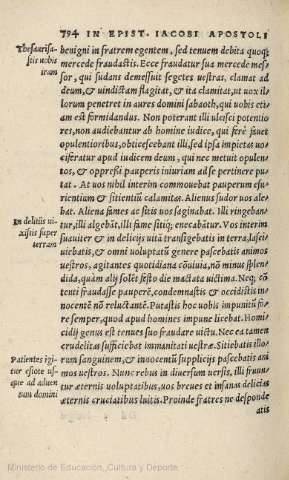 794 IN EPIST. IACOBI APOSTOLI
Thesaurisa-
stis uobis
iram
benigni in fratrem egentem, sed tenuem debita quoq;
mercede fraudastis. Ecce fraudatur sua mercede mes-
sor, qui sudans demessuit segetes uestras, clamat ad
deum, & uindictam flagitat, & ita clamitat, ut uox il-
lorum penetret in aures domini sabaoth, qui uobis eti-
am est formidandus. Non poterant illi ulcisci potentio
res, non audiebantur ab homine iudice, qui ferè fauet
opulentioribus, obticescebant illi, sed ipsa impietas uo-
ciferatur apud iudicem deum, qui nec metuit opulen-
tos, & oppressi pauperis iniuriam ad se pertinere pu-
tat. At uos nihil interim commouebat pauperum esu-
rientium & sitientiũ calamitas. Alienus sudor uos ale
bat. Aliena fames ac sitis uos saginabat. Illi ringeban-
In delitiis ui-
xistis super
terram
tur, illi algebãt, illi fame sitiq; enecabãtur. Vos interim
suauiter & in delicijs uitã transigebatis in terra, lasci-
uiebatis, & omni uoluptatũ genere pascebatis animos
uestros, agitantes quotidiana cõuiuia, nõ minus splen
dida, quàm alij solẽt festo die mactata uictima. Neq; cõ
tenti fraudasse pauperẽ, condemnastis & occidistis in-
nocentẽ nõ reluctantẽ. Parastis hoc uobis impunitũ fo
re semper, quod apud homines impune licebat. Homi-
cidij genus est tenues suo fraudare uictu. Nec ea tamen
crudelitas sufficiebat immanitati uestræ. Sitiebatis illo-
Patientes igi-
tur estote us-
que ad aduen
tum domini
rum sanguinem, & innocentũ supplicijs pascebatis ani
mos uestros. Nunc rebus in diuersum uersis, illi fruun-
tur æternis uoluptatibus, uos breues et insanas delicias
æternis cruciatibus luitis. Proinde fratres ne despond
atis
Ministerio de Educación, Cultura y Deporte